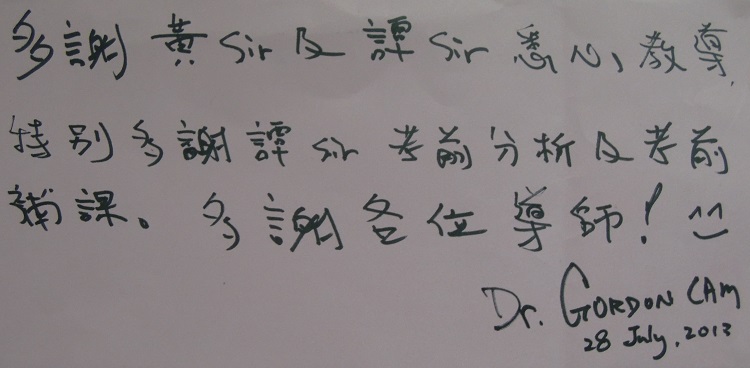 多謝黃 Sir 及譚 Sir 悉心教導,
特別多謝譚 sir 考前分析及考前
補課。多謝各位導師! :)
Dr. GORDON CAM
28 July, 2013